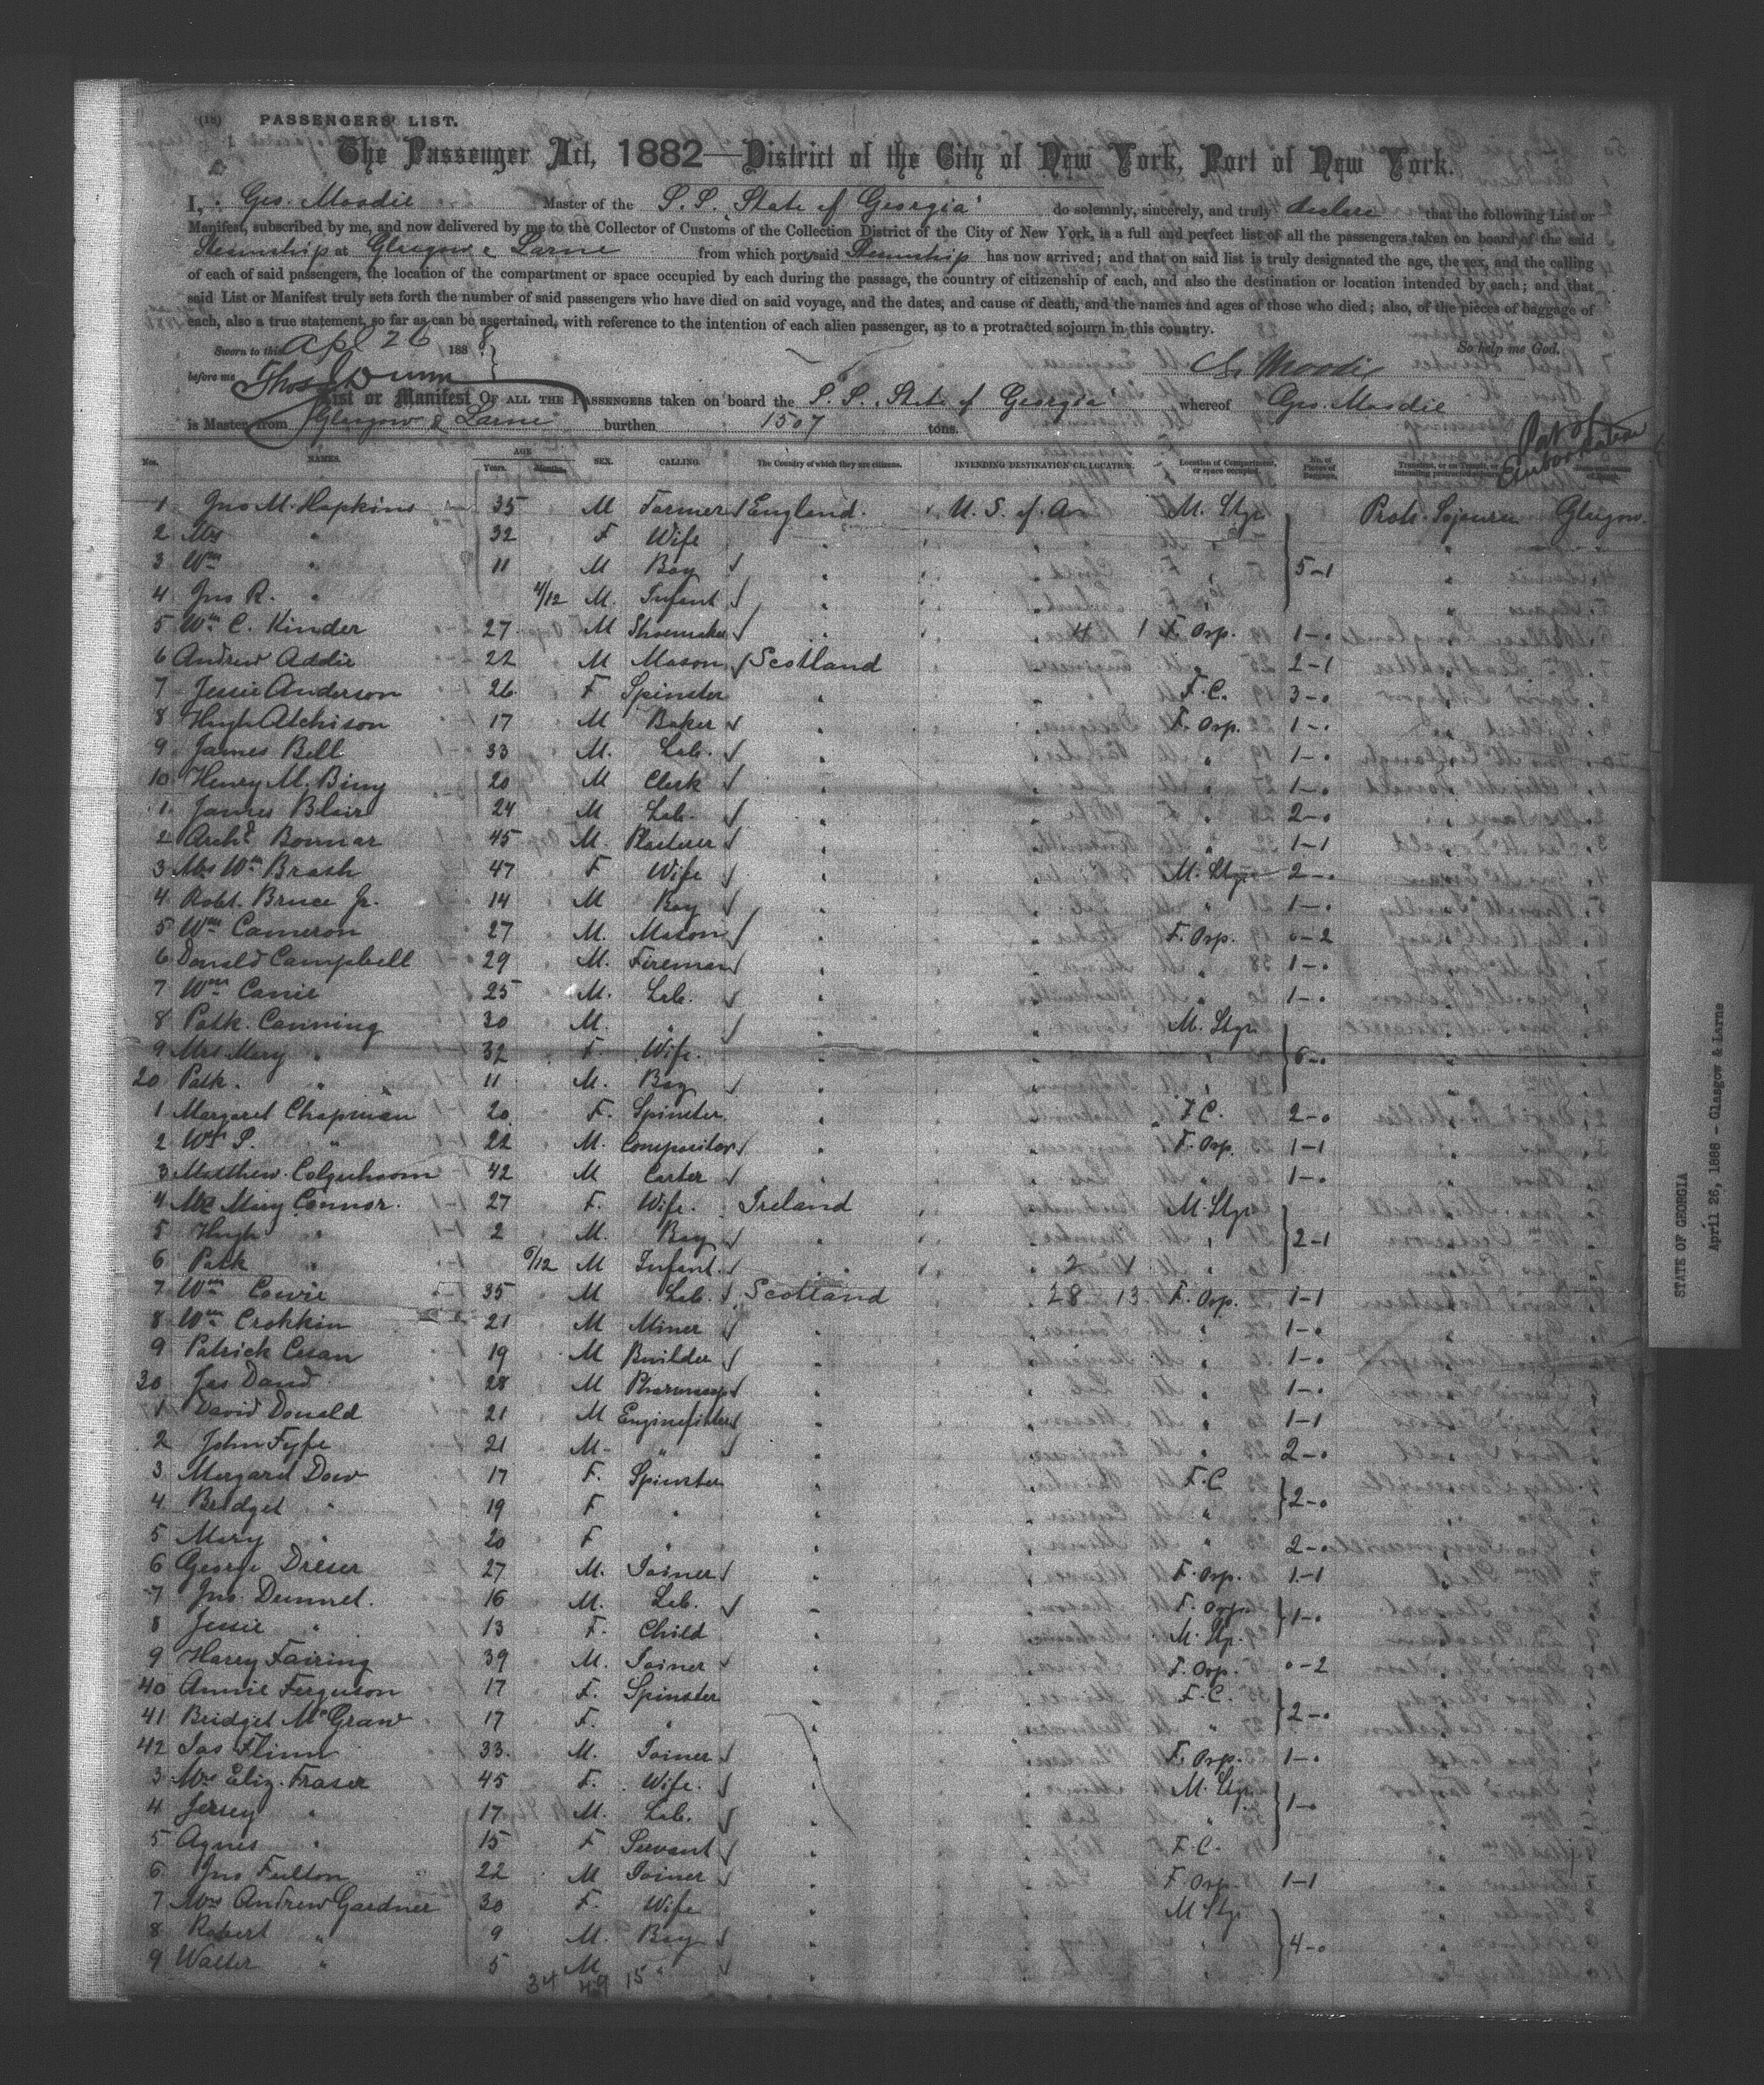 (18) PASSENGERS' LIST.
The Passenger Act, 1882—District of the City of New York, Port of New York.
I, Geo. Moodie Master of the S.S. "State of Georgia" do solemnly, sincerely, and truly declare that the following List or
Manifest, subscribed by me, and now delivered by me to the Collector of Customs of the Collection District of the City of New York, is a full and perfect list of all the passengers taken on board of the said
Steamship at Glasgow & Larne from which port said Steamship has now arrived; and that on said list is truly designated the age, the sex, and the calling
of each of said passengers, the location of the compartment or space occupied by each during the passage, the country of citizenship of each, and also the destination or location intended by each; and that
said List or Manifest truly sets forth the number of said passengers who have died on said voyage, and the dates, and cause of death, and the names and ages of those who died; also, of the pieces of baggage of
each, also a true statement, so far as can be ascertained, with reference to the intention of each alien passenger, as to a protracted sojourn in this country.
Sworn to this Apl 26 1888 So help me God.
before me Thos Dunn G. Moodie
List or Manifest OF ALL THE PASSENGERS taken on board the S.S. "State of Georgia" whereof Geo. Moodie
is Master from Glasgow & Larne burthen 1507 tons.
Port of Embarkation
Nos. NAMES. AGE Years. Months. SEX. CALLING. The Country of which they are citizens. INTENDING DESTINATION OR LOCATION. Location of Compartment, or space occupied. No. of Pieces of Baggage.
1 Jno M. Hopkins 35 M Farmer England. U.S. of Am M. Stge Prots. Sojourn Glasgow
2 Mrs " 32 F Wife " " "
3 Wm " 11 M Boy " " " 5-1
4 Jno R. " 4/12 M. Infant " " "
5 Wm C. Kinder 27 M Shoemaker " " 4 1 F. Orp. 1-0
6 Andrew Addie 22 M Mason Scotland " " 2-1
7 Jessie Anderson 26 F Spinster " " F.C. 3-0
8 Hugh Atchison 17 M Baker " " F. Orp. 1-0
9 James Bell 33 M. Lab. " " " 1-0
10 Henry M. Biny 20 M Clerk " " " 1-0
1 James Blair 24 M Lab. " " " 2-0
2 Archd Bonnar 45 M. Plasterer " " " 1-1
3 Mrs Wm Brash 47 F Wife " " M. Stge 2-0
4 Robt. Bruce Jr. 14 M Boy " " " 1-0
5 Wm Cameron 27 M. Mason " " F. Orp. 0-2
6 Donald Campbell 29 M. Fireman " " " 1-0
7 Wm Canie 25 M. Lab. " " " 1-0
8 Patk. Canning 30 M. " " " M. Stge
9 Mrs Mary " 32 F. Wife. " " " 6-0
20 Patk. " 11 M. Boy " " "
1 Margaret Chapman 20 F. Spinster " " F.C. 2-0
2 Wm S. " 22 M. Compositor " " F. Orp. 1-1
3 Matthew Colquhoun 42 M Carter " " " 1-0
4 Mrs Mary Connor. 27 F. Wife. Ireland " M. Stge
5 Hugh " 2 M. Boy " " " 2-1
6 Patk " 6/12 M Infant " " 2 1 "
7 Wm Cowie 35 M Lab. Scotland " 28 13 F. Orp. 1-1
8 Wm Crohkin 21 M Miner " " " 1-0
9 Patrick Cusan 19 M Builder " " " 1-0
30 Jas Dand 28 M " " " 1-0
1 David Donald 21 M Enginefitter " " " 1-1
2 John Fyfe 21 M. " " " " 2-0
3 Margaret Dow 17 F. Spinster " " F.C
4 Bridget " 19 F " " " " 2-0
5 Mary " 20 F " " " " 2-0
6 George Dreser 27 M. Joiner " " F. Orp. 1-1
7 Jno. Dummet. 16 M. Lab. " " F. Orp. 1-0
8 Jessie " 13 F. Child " " M. Stge.
9 Harry Fairing 39 M. Joiner " " F. Orp. 0-2
40 Annie Ferguson 17 F. Spinster " " F.C.
41 Bridget McGraw 17 F. " " " " 2-0
42 Jas Flinn 33 M. Joiner " " F. Orp. 1-0
3 Mrs Eliz. Fraser 45 F. Wife. " " M. Stge
4 Jersey " 17 M. Lab. " " " 1-0
5 Agnes " 15 F Servant " " F.C.
6 Jno Fulton 22 M Joiner " " F. Orp. 1-1
7 Mrs Andrew Gardner 30 F. Wife " " M Stge
8 Robert " 9 M. Boy " " " 4-0
9 Walter " 5 M " " " "
34 49 15
STATE OF GEORGIA
April 26, 1888 - Glasgow & Larne